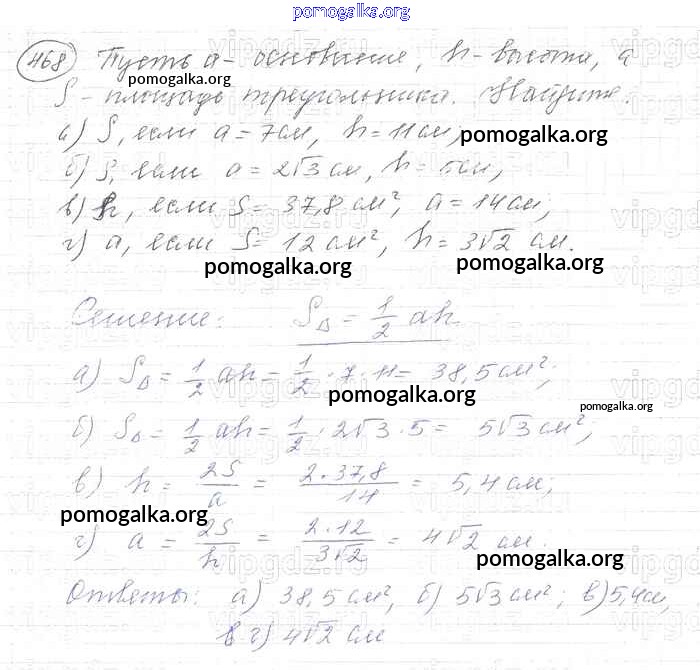 pomogalka.org
468 Пусть a - основание, h - высота, а
pomogalka.org
S - площадь треугольника. Найдите:
а) S, если a = 7 см, h = 11 см,
pomogalka.org
б) S, если a = 2√3 см, h = 5 см,
в) h, если S = 37,8 см², a = 14 см;
г) a, если S = 12 см², h = 3√2 см.
pomogalka.org pomogalka.org
Решение: S△ = 1/2 ah
а) S△ = 1/2 ah = 1/2 · 7 · 11 = 38,5 см²;
pomogalka.org
pomogalka.org
б) S△ = 1/2 ah = 1/2 · 2√3 · 5 = 5√3 см²;
в) h = 2S/a = 2·37,8/14 = 5,4 см;
pomogalka.org
г) a = 2S/h = 2·12/3√2 = 4√2 см.
pomogalka.org
Ответы: а) 38,5 см², б) 5√3 см²; в) 5,4 см,
г) 4√2 см